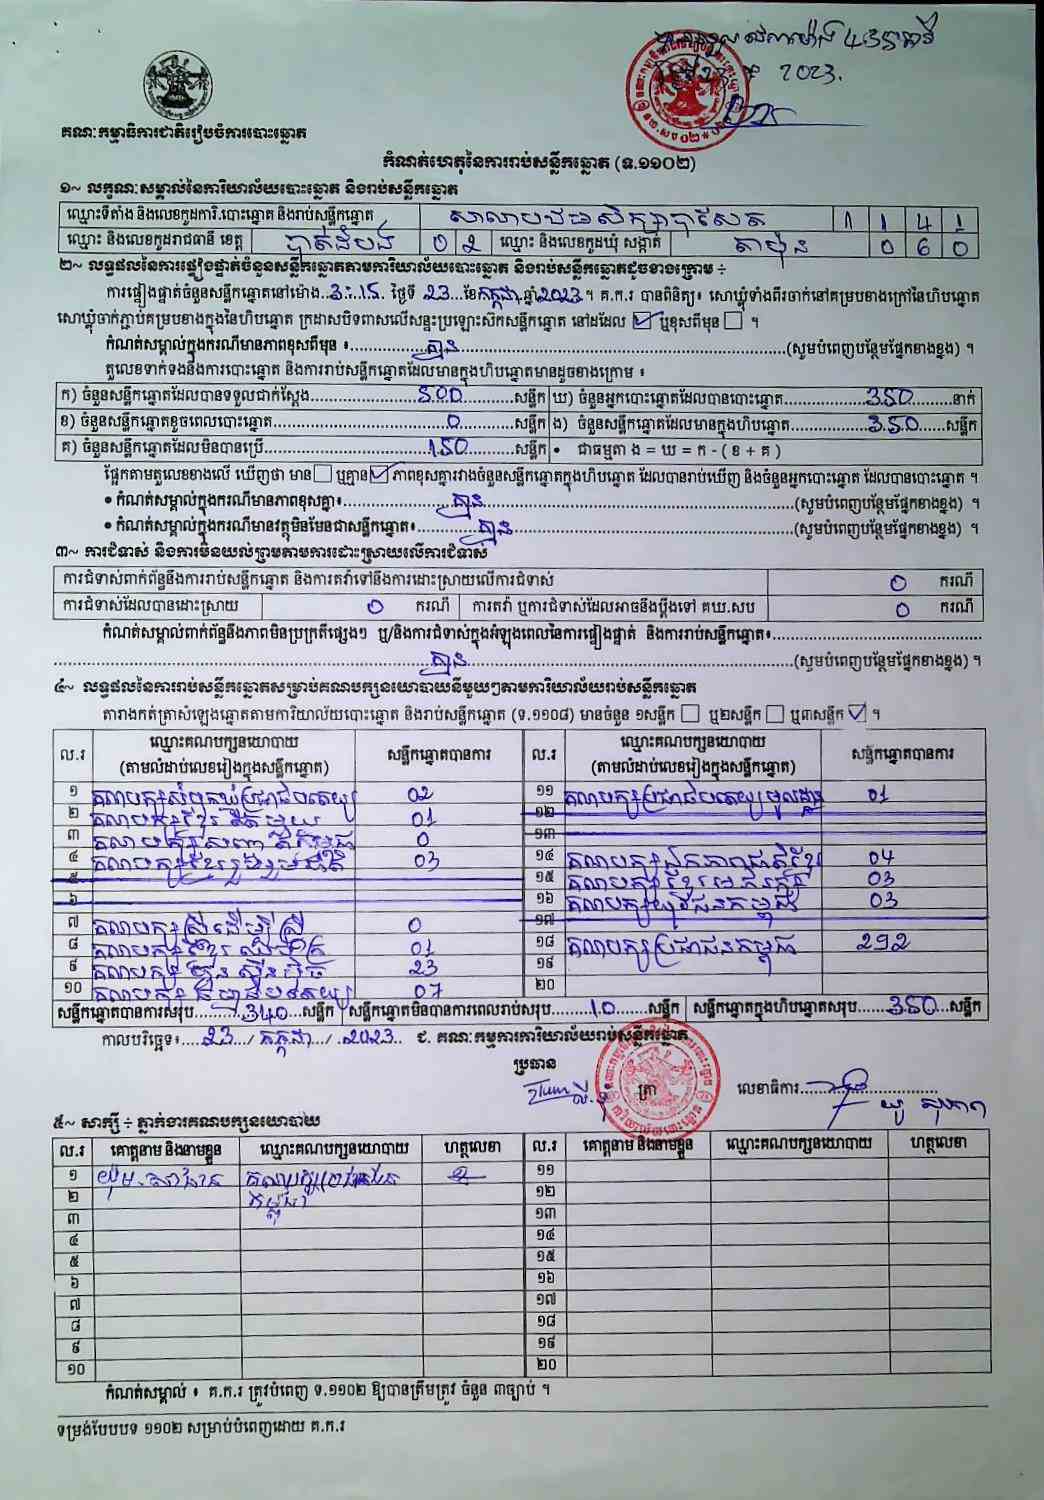 2023.
គណៈកម្មាធិការជាតិរៀបចំការបោះឆ្នោត
កំណត់ហេតុនៃការរាប់សន្លឹកឆ្នោត (ទ.១១០២)
១~ លក្ខណៈសម្គាល់នៃការិយាល័យបោះឆ្នោត និងរាប់សន្លឹកឆ្នោត
ឈ្មោះទីតាំង និងលេខកូដការិ.បោះឆ្នោត និងរាប់សន្លឹកឆ្នោត សាលាបឋមសិក្សាបាសែត 1 1 4 1
ឈ្មោះ និងលេខកូដរាជធានី ខេត្ត បាត់ដំបង 0 2 ឈ្មោះ និងលេខកូដឃុំ សង្កាត់ តាប៉ុន 0 6 0
២~ លទ្ធផលនៃការផ្ទៀងផ្ទាត់ចំនួនសន្លឹកឆ្នោតតាមការិយាល័យបោះឆ្នោត និងរាប់សន្លឹកឆ្នោតដូចខាងក្រោម ÷
ការផ្ទៀងផ្ទាត់ចំនួនសន្លឹកឆ្នោតនៅម៉ោង..3:15 ថ្ងៃទី 23 ខែកក្កដា ឆ្នាំ2023។ គ.ក.រ បានពិនិត្យ៖ សោឃ្លុំទាំងពីរចាក់នៅគម្របខាងក្រៅនៃហិបឆ្នោត
សោឃ្លុំចាក់ភ្ជាប់គម្របខាងក្នុងនៃហិបឆ្នោត ក្រដាសបិទពាសលើសន្ទះប្រឡោះសឹកសន្លឹកឆ្នោត នៅដដែល ☑ ឬខុសពីមុន ☐ ។
កំណត់សម្គាល់ក្នុងករណីមានភាពខុសពីមុន ៖ គ្មាន (សូមបំពេញបន្ថែមផ្នែកខាងខ្នង) ។
តួលេខទាក់ទងនឹងការបោះឆ្នោត និងការរាប់សន្លឹកឆ្នោតដែលមានក្នុងហិបឆ្នោតមានដូចខាងក្រោម ៖
ក) ចំនួនសន្លឹកឆ្នោតដែលបានទទួលជាក់ស្តែង 500 សន្លឹក ឃ) ចំនួនអ្នកបោះឆ្នោតដែលបានបោះឆ្នោត 350 នាក់
ខ) ចំនួនសន្លឹកឆ្នោតខូចពេលបោះឆ្នោត 0 សន្លឹក ង) ចំនួនសន្លឹកឆ្នោតដែលមានក្នុងហិបឆ្នោត 350 សន្លឹក
គ) ចំនួនសន្លឹកឆ្នោតដែលមិនបានប្រើ 150 សន្លឹក • ជាធម្មតា ង = ឃ = ក - ( ខ + គ )
ផ្អែកតាមតួលេខខាងលើ ឃើញថា មាន ☐ ឬគ្មាន ☑ ភាពខុសគ្នារវាងចំនួនសន្លឹកឆ្នោតក្នុងហិបឆ្នោត ដែលបានរាប់ឃើញ និងចំនួនអ្នកបោះឆ្នោត ដែលបានបោះឆ្នោត ។
• កំណត់សម្គាល់ក្នុងករណីមានភាពខុសគ្នា៖ គ្មាន (សូមបំពេញបន្ថែមផ្នែកខាងខ្នង) ។
• កំណត់សម្គាល់ក្នុងករណីមានវត្ថុមិនមែនជាសន្លឹកឆ្នោត៖ គ្មាន (សូមបំពេញបន្ថែមផ្នែកខាងខ្នង) ។
៣~ ការជំទាស់ និងការមិនយល់ព្រមតាមការដោះស្រាយលើការជំទាស់
ការជំទាស់ពាក់ព័ន្ធនឹងការរាប់សន្លឹកឆ្នោត និងការតវ៉ាទៅនឹងការដោះស្រាយលើការជំទាស់ 0 ករណី
ការជំទាស់ដែលបានដោះស្រាយ 0 ករណី ការតវ៉ា ឬការជំទាស់ដែលអាចនឹងប្តឹងទៅ គឃ.សប 0 ករណី
កំណត់សម្គាល់ពាក់ព័ន្ធនឹងភាពមិនប្រក្រតីផ្សេងៗ ឬ/និងការជំទាស់ក្នុងអំឡុងពេលនៃការផ្ទៀងផ្ទាត់ និងការរាប់សន្លឹកឆ្នោត៖
គ្មាន (សូមបំពេញបន្ថែមផ្នែកខាងខ្នង) ។
៤~ លទ្ធផលនៃការរាប់សន្លឹកឆ្នោតសម្រាប់គណបក្សនយោបាយនីមួយៗតាមការិយាល័យរាប់សន្លឹកឆ្នោត
តារាងកត់ត្រាសំឡេងឆ្នោតតាមការិយាល័យបោះឆ្នោត និងរាប់សន្លឹកឆ្នោត (ទ.១១០៨) មានចំនួន ១សន្លឹក ☐ ឬ២សន្លឹក ☐ ឬ៣សន្លឹក ☑ ។
ល.រ ឈ្មោះគណបក្សនយោបាយ (តាមលំដាប់លេខរៀងក្នុងសន្លឹកឆ្នោត) សន្លឹកឆ្នោតបានការ ល.រ ឈ្មោះគណបក្សនយោបាយ (តាមលំដាប់លេខរៀងក្នុងសន្លឹកឆ្នោត) សន្លឹកឆ្នោតបានការ
១ គណបក្សសំបុកឃ្មុំប្រជាធិបតេយ្យ 02 ១១ គណបក្សប្រជាធិបតេយ្យមូលដ្ឋាន 01
២ គណបក្សខ្មែរតែមួយ 01 ១២
៣ គណបក្ស 0 ១៣
៤ គណបក្សខ្មែររួបរួមជាតិ 03 ១៤ គណបក្សឯកភាពជាតិខ្មែរ 04
៥ ១៥ គណបក្សខ្មែរអភិរក្ស 03
៦ ១៦ គណបក្សយុវជនកម្ពុជា 03
៧ គណបក្សស្រ្តីដើម្បីស្រ្តី 0 ១៧
៨ គណបក្សខ្មែរឈប់ក្រ 01 ១៨ គណបក្សប្រជាជនកម្ពុជា 292
៩ គណបក្សហ៊្វុនស៊ិនប៉ិច 23 ១៩
១០ គណបក្សធម្មាធិបតេយ្យ 07 ២០
សន្លឹកឆ្នោតបានការសរុប 340 សន្លឹក សន្លឹកឆ្នោតមិនបានការពេលរាប់សរុប 10 សន្លឹក សន្លឹកឆ្នោតក្នុងហិបឆ្នោតសរុប 350 សន្លឹក
កាលបរិច្ឆេទ៖ 23 / កក្កដា / 2023 ជ. គណៈកម្មការការិយាល័យរាប់សន្លឹកឆ្នោត
ប្រធាន
ត្រា លេខាធិការ
៥~ សាក្សី ÷ ភ្នាក់ងារគណបក្សនយោបាយ
ល.រ គោត្តនាម និងនាមខ្លួន ឈ្មោះគណបក្សនយោបាយ ហត្ថលេខា ល.រ គោត្តនាម និងនាមខ្លួន ឈ្មោះគណបក្សនយោបាយ ហត្ថលេខា
១ គណបក្សប្រជាជន ១១
២ កម្ពុជា ១២
៣ ១៣
៤ ១៤
៥ ១៥
៦ ១៦
៧ ១៧
៨ ១៨
៩ ១៩
១០ ២០
កំណត់សម្គាល់ ៖ គ.ក.រ ត្រូវបំពេញ ទ.១១០២ ឱ្យបានត្រឹមត្រូវ ចំនួន ៣ច្បាប់ ។
ទម្រង់បែបបទ ១១០២ សម្រាប់បំពេញដោយ គ.ក.រ